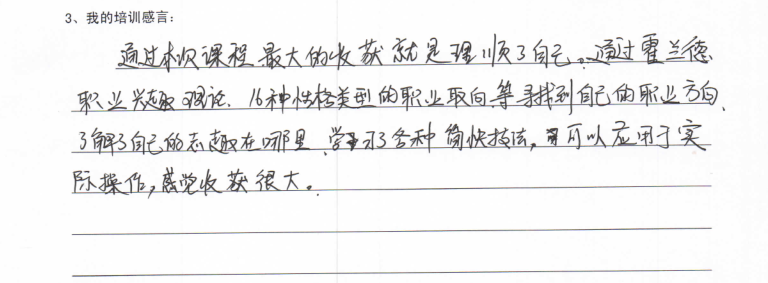 3、我的培训感言：
通过本次课程最大的收获就是理顺了自己。通过霍兰德
职业兴趣理论、16种性格类型的职业取向等寻找到自己的职业方向、
了解了自己的志趣在哪里、学习了各种简快技法，可以应用于实
际操作，感觉收获很大。